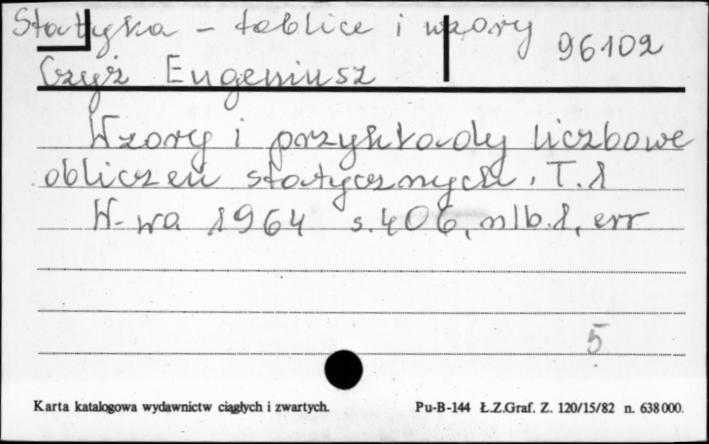 Statyka - tablice i wzory 96102
Czyż Eugeniusz
Wzory i przykłady liczbowe
obliczeń statycznych. T. 1
W-wa 1964 s. 406, nlb. 1, err
5
Karta katalogowa wydawnictw ciągłych i zwartych. Pu-B-144 Ł.Z.Graf. Z. 120/15/82 n. 638000.